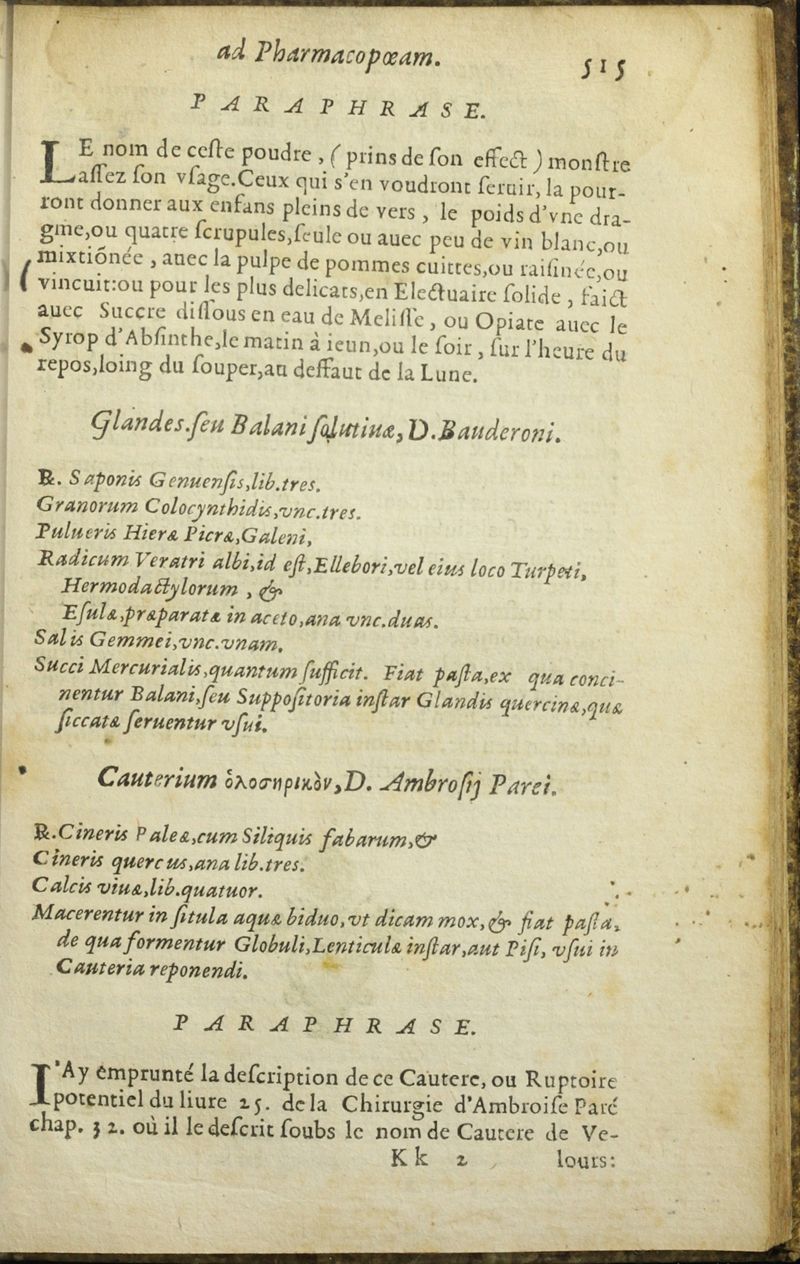 ad Pharmacopœam. 515
PARAPHRASE.
LE nom de ceſte poudre, (prins de ſon effect) monſtre
aſſez ſon vſage. Ceux qui s'en voudront ſeruir, la pour-
ront donner aux enfans pleins de vers, le poids d'vne dra-
gme, ou quatre ſcrupules, ſeule ou auec peu de vin blanc, ou
mixtionée, auec la pulpe de pommes cuittes, ou raiſinée, ou
vincuit: ou pour les plus delicats, en Electuaire ſolide, faict
auec Succre diſſous en eau de Meliſſe, ou Opiate auec le
Syrop d'Abſinthe, le matin à ieun, ou le ſoir, ſur l'heure du
repos, loing du ſouper, au deffaut de la Lune.
Glandes. ſeu Balani ſolutiuæ, D. Bauderoni.
℞. Saponis Genuenſis, lib. tres.
Granorum Colocynthidis, vnc. tres.
Pulueris Hieræ Picræ, Galeni,
Radicum Veratri albi, id eſt, Ellebori, vel eius loco Turpeti,
Hermodactylorum, &
Eſulæ, præparatæ in aceto, ana vnc. duas.
Salis Gemmei, vnc. vnam.
Succi Mercurialis, quantum ſufficit. Fiat paſta, ex qua conci-
nentur Balani, ſeu Suppoſitoria inſtar Glandis quercinæ, quæ
ſiccatæ ſeruentur vſui.
Cauterium ὁλοστηρικὸν, D. Ambroſij Parei.
℞. Cineris Paleæ, cum Siliquis fabarum, &
Cineris quercus, ana lib. tres.
Calcis viuæ, lib. quatuor.
Macerentur in ſitula aquæ biduo, vt dicam mox, & fiat paſta,
de qua formentur Globuli, Lenticulæ inſtar, aut Piſi, vſui in
Cauteria reponendi.
PARAPHRASE.
I'Ay emprunté la deſcription de ce Cautere, ou Ruptoire
potentiel du liure 25. de la Chirurgie d'Ambroiſe Paré
chap. 32. où il le deſcrit ſoubs le nom de Cautere de Ve-
Kk 2 lours: